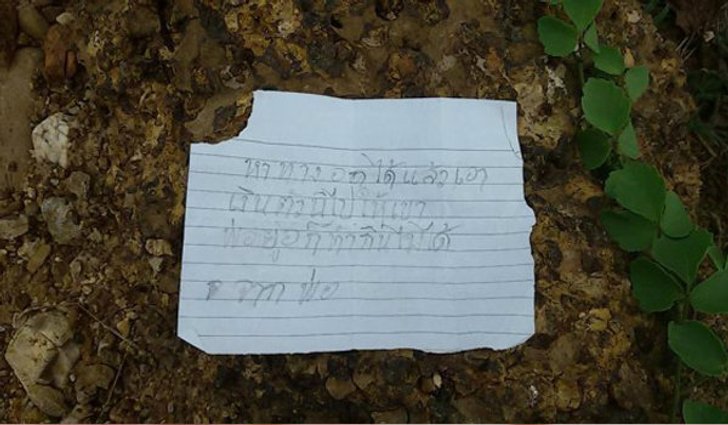 หาทางออกได้แล้วเอา
เงินตัวนี้ไปให้เขา
พ่อ ก็ทำ ไม่ได้
จาก พ่อ